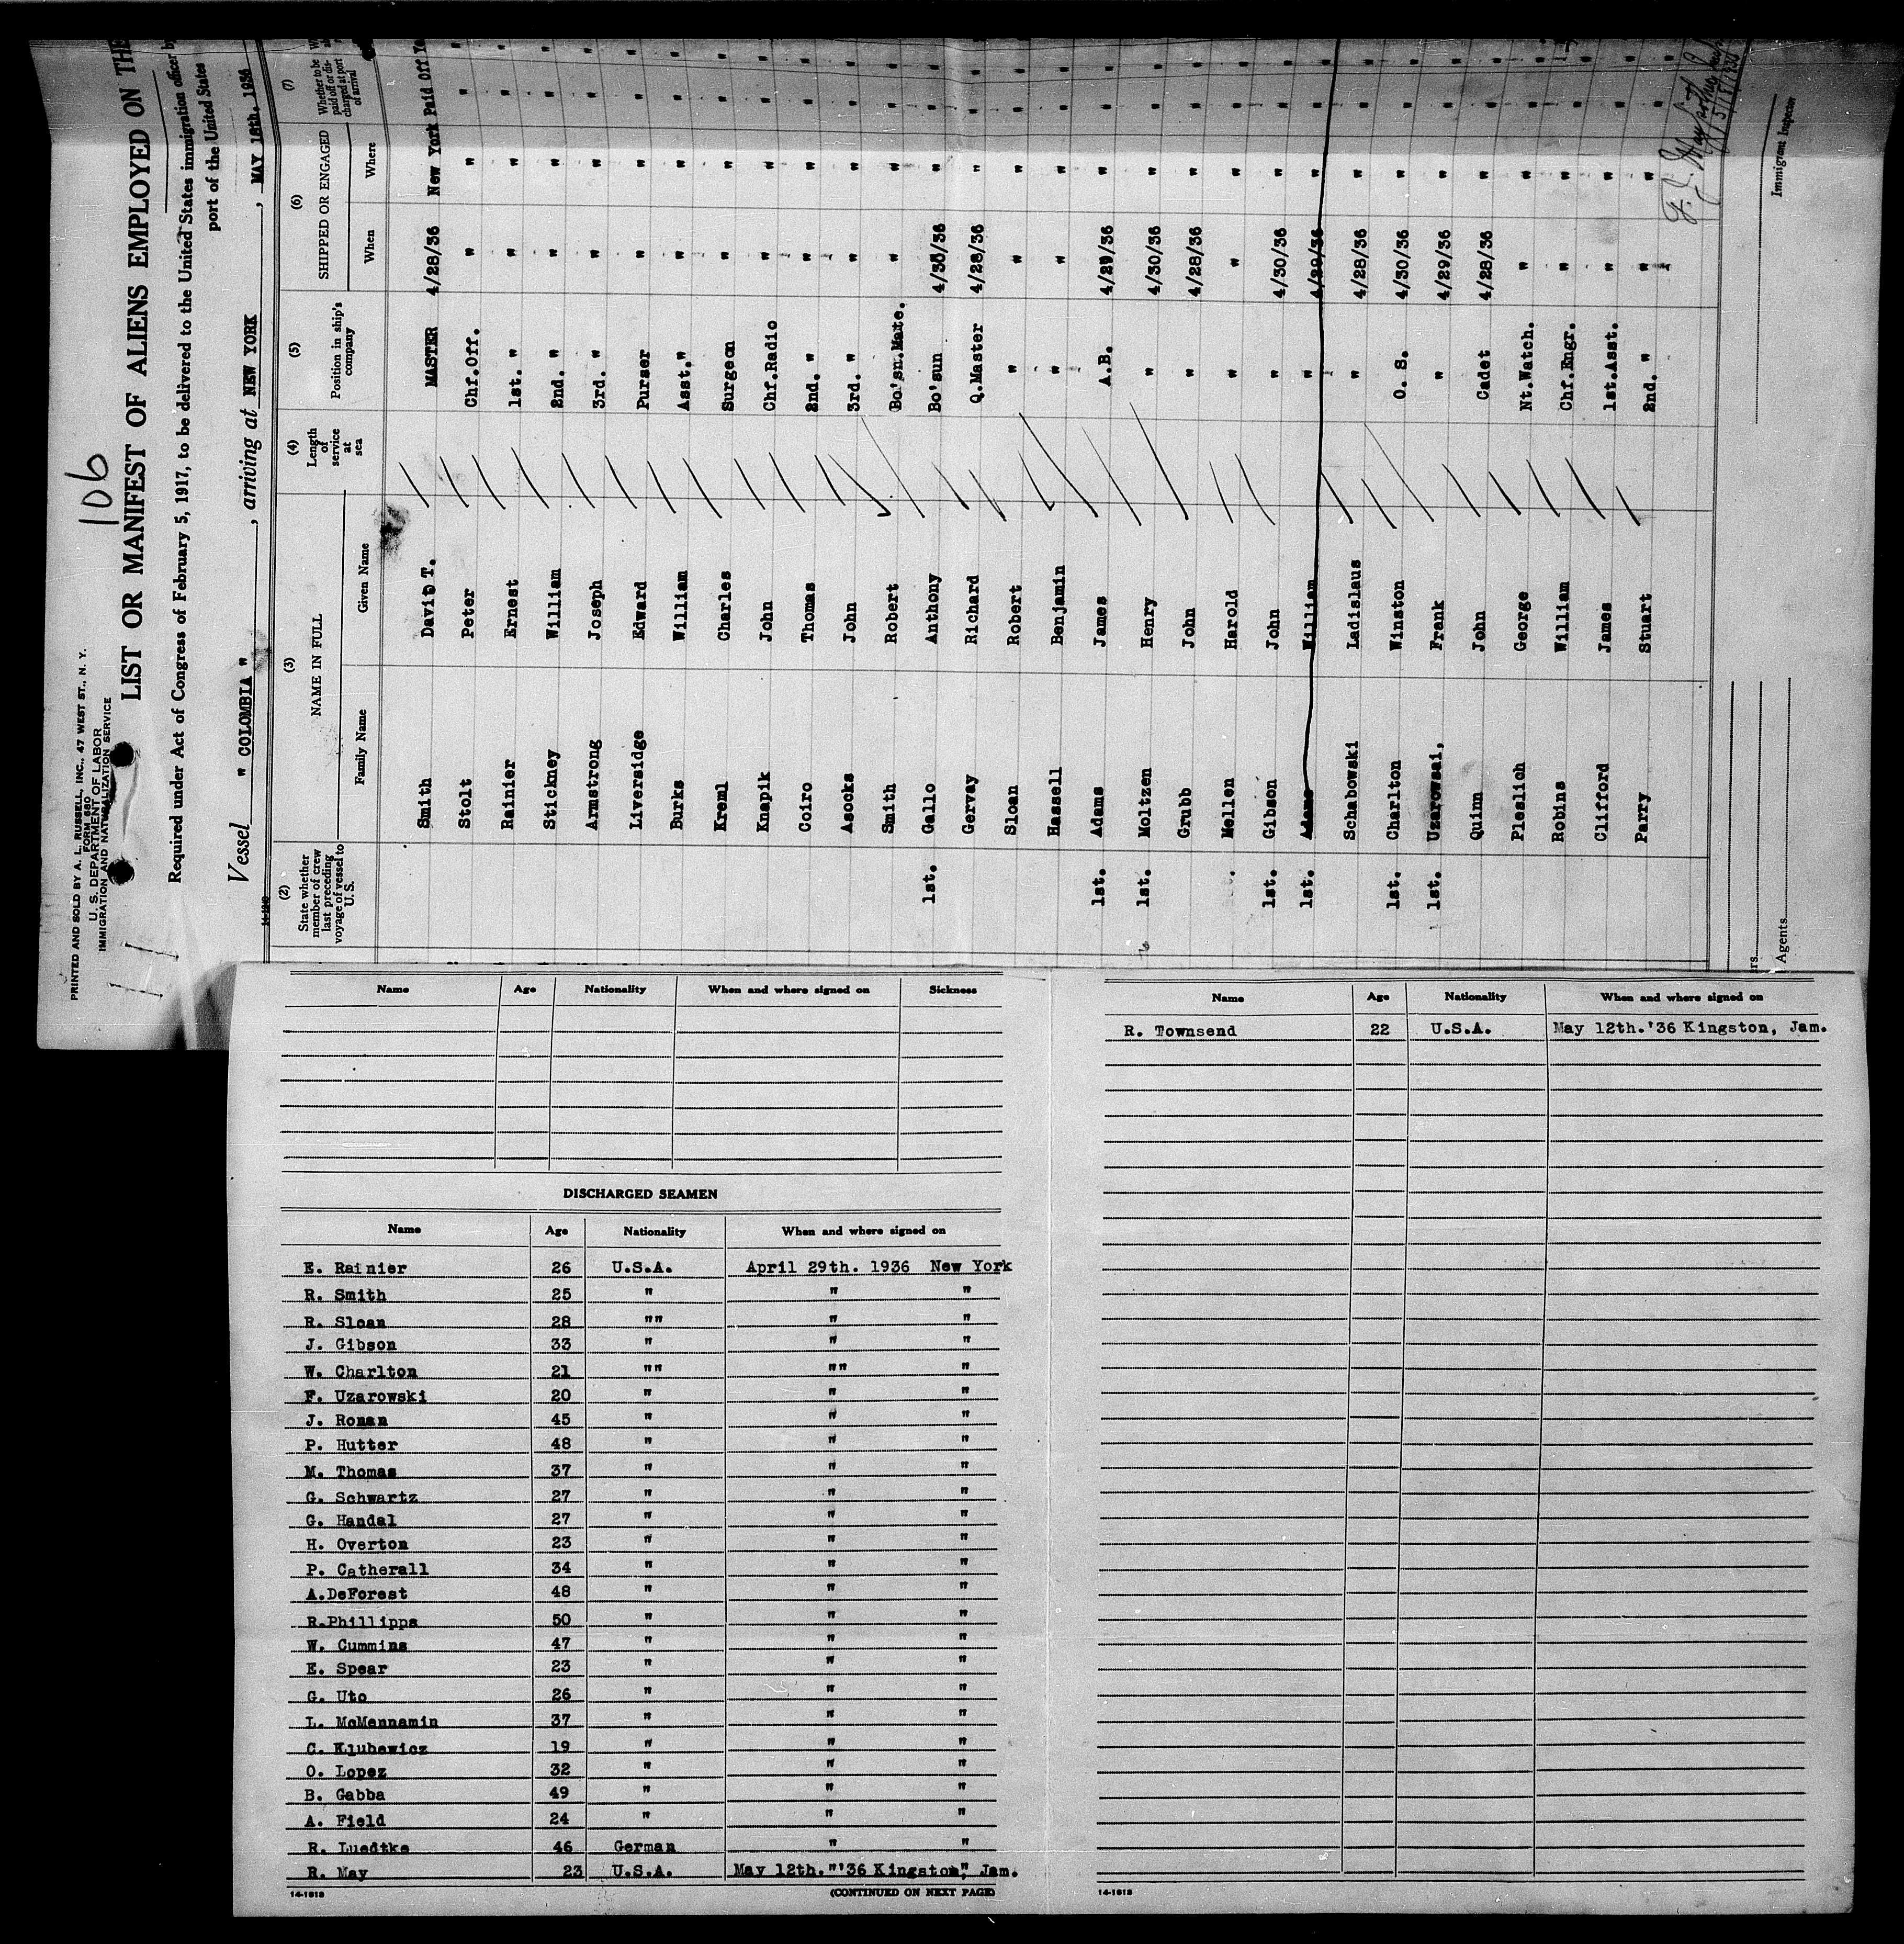 PRINTED AND SOLD BY A. L. RUSSELL, INC., 47 WEST ST., N. Y.
FORM 680
U. S. DEPARTMENT OF LABOR
IMMIGRATION AND NATURALIZATION SERVICE
106
LIST OR MANIFEST OF ALIENS EMPLOYED ON THE
Required under Act of Congress of February 5, 1917, to be delivered to the United States immigration officer by
port of the United States
Vessel " COLOMBIA " , arriving at NEW YORK , MAY 18th. 1936
(2) (3) (4) (5) (6) (7)
State whether member of crew last preceding voyage of vessel to U. S. NAME IN FULL Length of service at sea Position in ship's company SHIPPED OR ENGAGED Whether to be paid off or discharged at port of arrival
Family Name Given Name When Where
Smith David T. MASTER 4/28/36 New York Paid Off
Stolt Peter Chf.Off. " " "
Rainier Ernest 1st. " " " "
Stickney William 2nd. " " " "
Armstrong Joseph 3rd. " " " "
Liversidge Edward Purser " " "
Burks William Asst." " " "
Kreml Charles Surgeon " " "
Knapik John Chf.Radio " " "
Coiro Thomas 2nd. " " " "
Asocks John 3rd. " " " "
Smith Robert Bo'sn.Mate. " " "
1st. Gallo Anthony Bo'sun 4/30/36 " "
Gervay Richard Q.Master 4/28/36 " "
Sloan Robert " " " "
Hassell Benjamin " " " "
1st. Adams James A.B. 4/29/36 " "
1st. Moltzen Henry " 4/30/36 " "
Grubb John " 4/28/36 " "
Mellen Harold " " " "
1st. Gibson John " 4/30/36 " "
1st. Adams William " 4/29/36 " "
Schabowski Ladislaus " 4/28/36 " "
1st. Charlton Winston O. S. 4/30/36 " "
1st. Uzarowsai, Frank " 4/29/36 " "
Quinn John Cadet 4/28/36 " "
Pleslich George Nt.Watch. " " "
Robins William Chf.Engr. " " "
Clifford James 1st.Asst. " " "
Parry Stuart 2nd. " " " "
Immigrant Inspector
Agents
Name Age Nationality When and where signed on Sickness
DISCHARGED SEAMEN
Name Age Nationality When and where signed on
E. Rainier 26 U.S.A. April 29th. 1936 New York
R. Smith 25 " " "
R. Sloan 28 "" " "
J. Gibson 33 " " "
W. Charlton 21 "" "" "
F. Uzarowski 20 " " "
J. Ronan 45 " " "
P. Hutter 48 " " "
M. Thomas 37 " " "
G. Schwartz 27 " " "
G. Handal 27 " " "
H. Overton 23 " " "
P. Catherall 34 " " "
A.DeForest 48 " " "
R.Phillipps 50 " " "
W. Cummins 47 " " "
E. Spear 23 " " "
G. Uto 26 " " "
L. McMennamin 37 " " "
C. Klubewicz 19 " " "
O. Lopez 32 " " "
B. Gabba 49 " " "
A. Field 24 " " "
R. Luedtke 46 German " "
R. May 23 U.S.A. May 12th."'36 Kingston," Jam.
14-1613 (CONTINUED ON NEXT PAGE)
Name Age Nationality When and where signed on
R. Townsend 22 U.S.A. May 12th.'36 Kingston, Jam.
14-1613